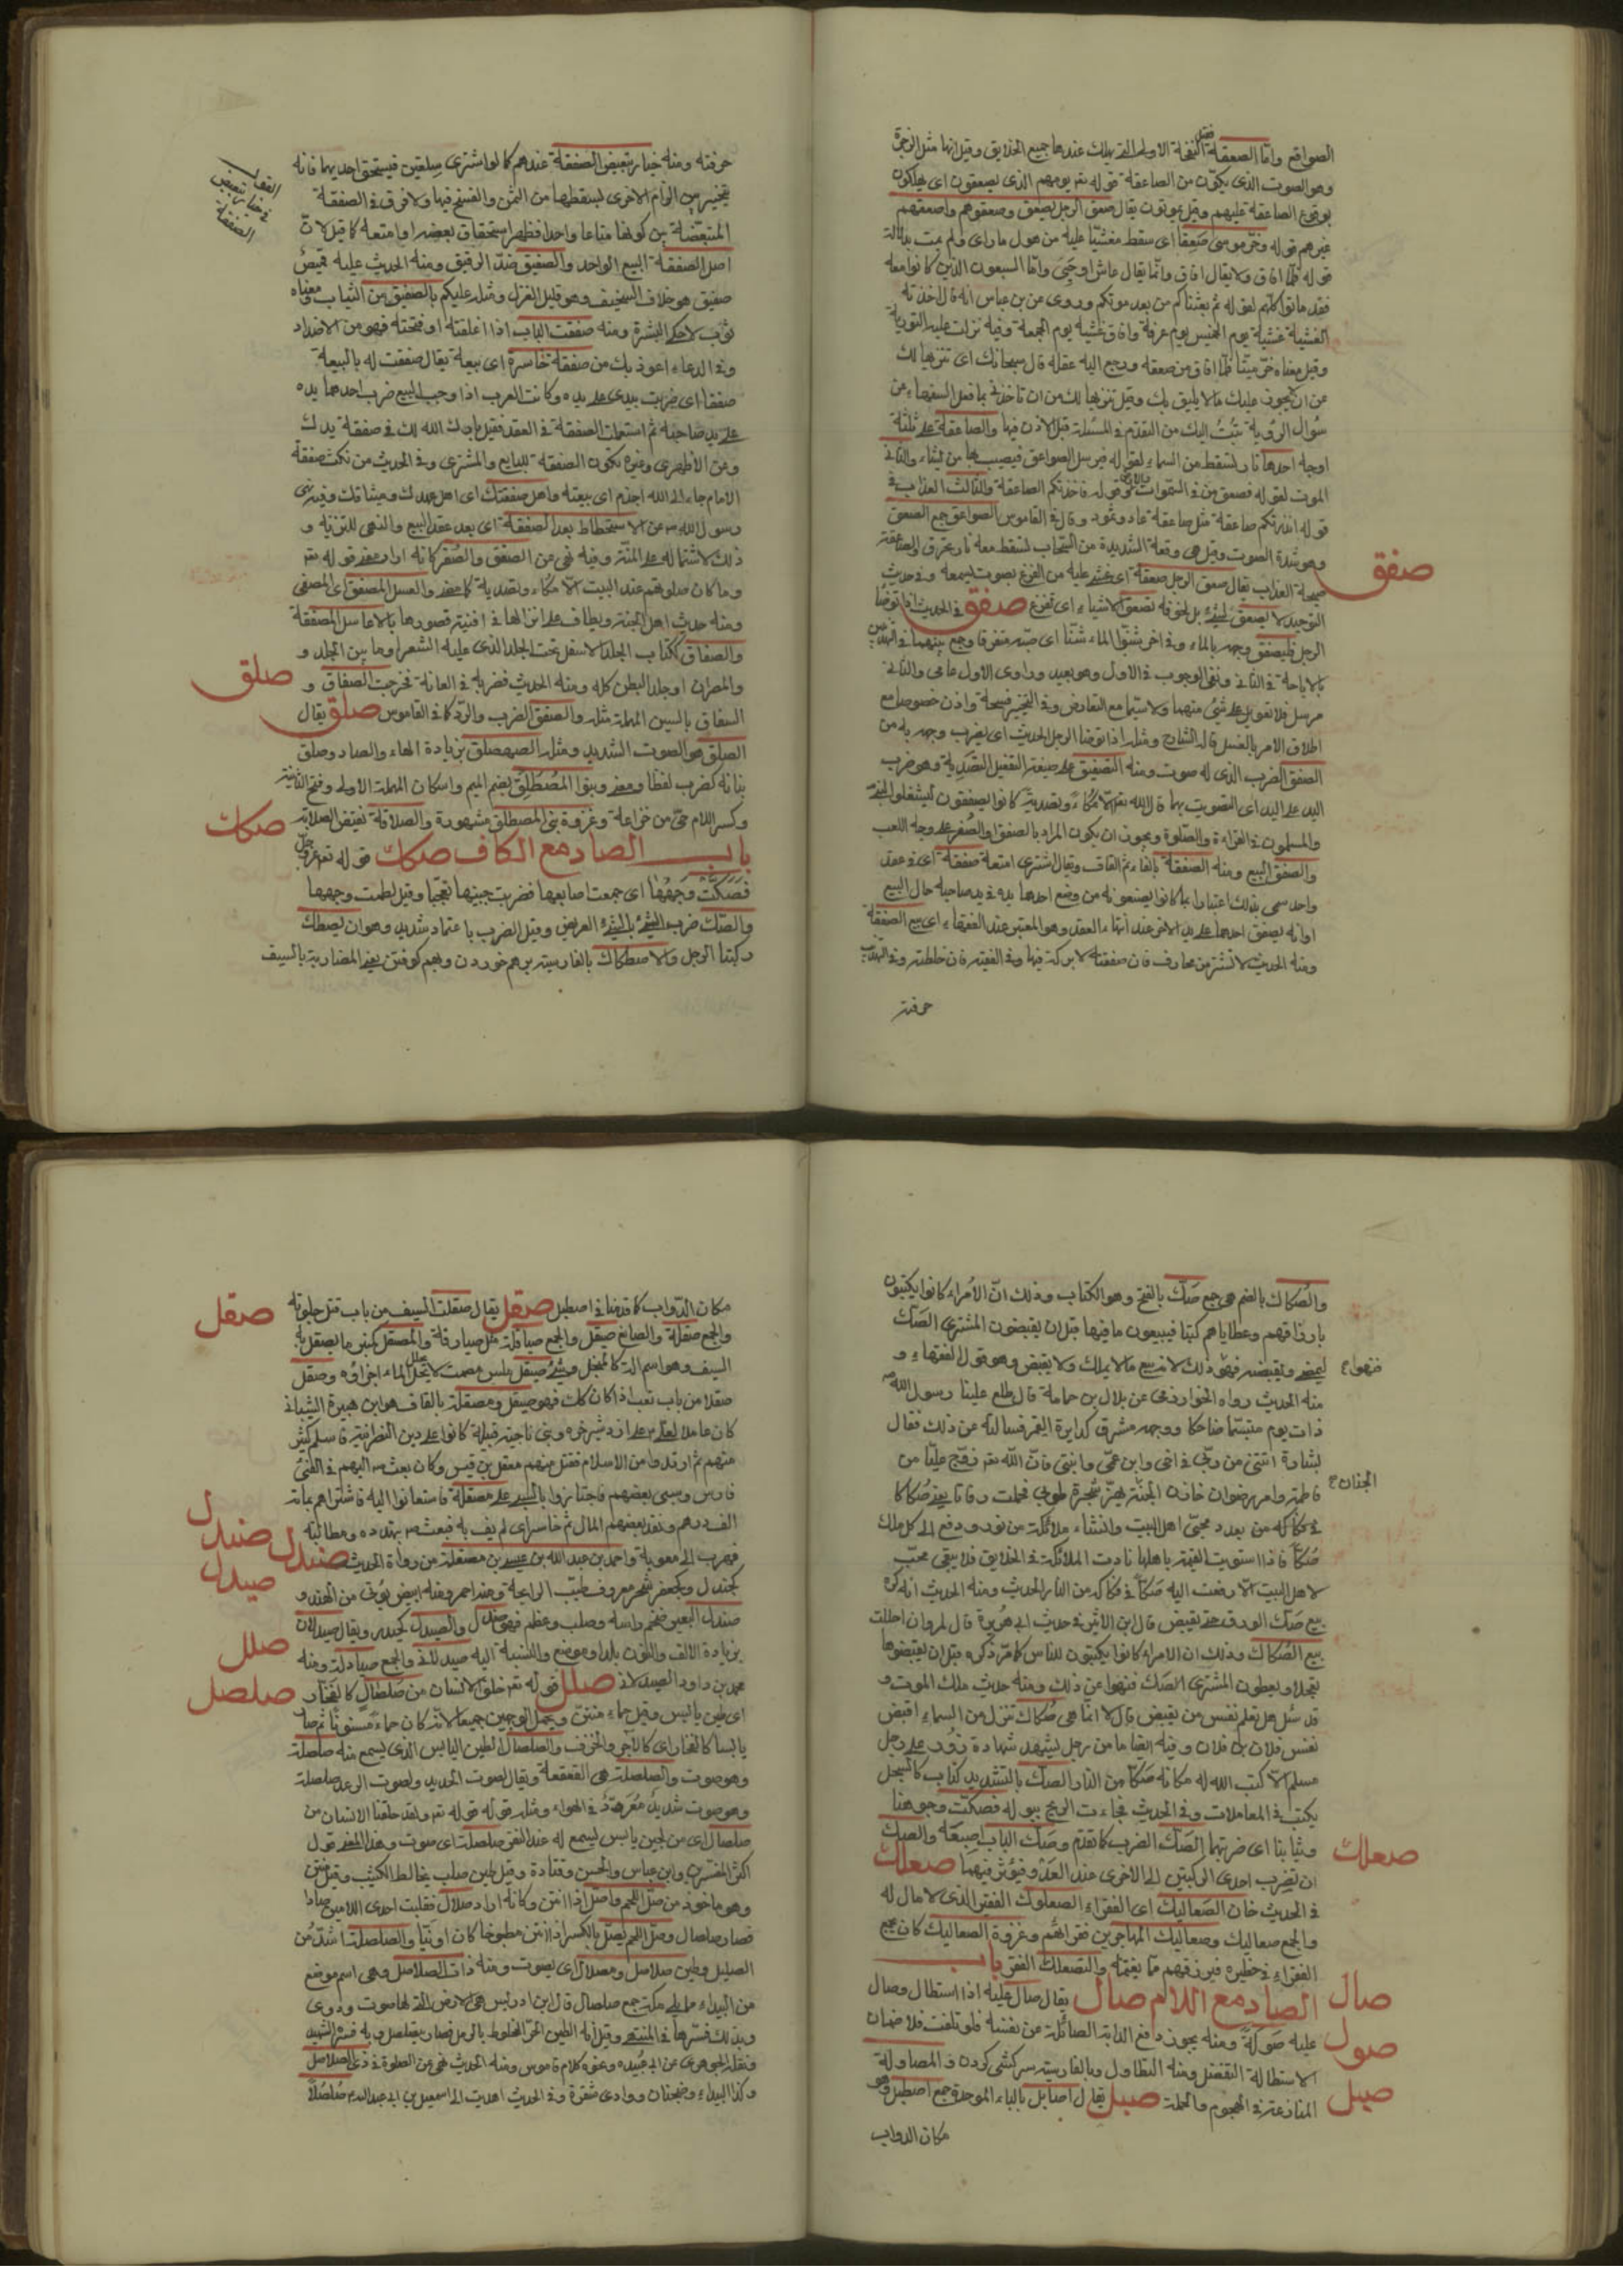 الصواقع وامّا الصعقة فقيل النفخة الاولى التى يهلك عندها جميع الخلايق وقيل انها مثل الزجرة
وهو الصوت الذى يكون من الصاعقة قوله تعـ يومهم الذى يصعقون اى يهلكون
بوقوع الصاعقة عليهم وقيل يموتون يقال صعق الرجل يصعق وصعقوهم واصعقهم
غيرهم قوله وخرّ موسى صَعِقا اى سقط مغشيّا عليه من هول ما راى ولم يمت بدلالة
قوله فلمّا افاق ولا يقال افاق وانّما يقال عاش او حَيِىَ وامّا السبعون الذين كانوا معه
فقد ماتوا كلّهم لقوله ثم بعثناكم من بعد موتكم وروى عن بن عباس انه قال اخذته
الغشية عشية يوم الخميس يوم عرفة وافاق عشية يوم الجمعة وفيه نزلت عليه التورية
وقيل معناه خرّ ميتا فلمّا افاق من صعقه ورجع اليه عقله قال سبحانك اى تنزيها لك
عن ان يجوز عليك ما لا يليق بك وقيل تنزيها لك من ان تاخذنى بما فعل السفهاء من
سؤال الرؤية تُبْتُ اليك من التقدّم فى المسئلة قبل الاذن فيها والصاعقة على ثلثة
اوجه احدها نار تسقط من السماء لقوله فيرسل الصواعق فيصيب بها من يشاء والثانى
الموت لقوله فصعق من فى السموات والارض وقوله فاخذتكم الصاعقة والثالث العذاب فى
قوله انذرتكم صاعقة مثل صاعقة عاد وثمود وقال فى القاموس الصواعق جمع الصعق
وهو شدة الصوت وقيل هى وقعة الشديدة من السحاب تسقط معه نار يحترق والصاعقة
صيحة العذاب يقال صعق الرجل صعقة اى غشى عليه من الفزع بصوت يسمعه وفى حديث
التوحيد لا يصعق لشئ بل لخوفه تصعق الاشياء اى تفزع صفق فى الحديث اذا توضّأ
صفق
الرجل فليصفق وجهه بالماء وفى اخر شنّوا الماء شنّا اى صبّه متفرقا وجمع بينهما فى التهذيب
بالاباحة فى الثانى ونفى الوجوب فى الاول وهو بعيد وراوى الاول عامى والثانى
مرسل فلا تعويل على شئ منهما ولاسيّما مع التعارض وفى التخيير فسحة واذن خصوصا مع
اطلاق الامر بالغسل قاله الشارح ومثله اذا توضا الرجل الحديث اى يضرب وجهه به من
الصفق الضرب الذى له صوت ومنه التصفيق على صيغة التفعيل التَصدية وهو ضرب
اليد على اليد اى التصويت بها قال الله تعـ الّا مُكَاءً وتصدية كانوا يصفقون ليشغلوا النبى
والمسلمون فى القراءة والصلوة ويجوز ان يكون المراد بالصفق والصُفر على وجه اللعب
والصفق البيع ومنه الصفقة بالفاء ثم القاف ويقال اشترى امتعة صفقة اى فى عقد
واحد سمى بذلك اعتبارا بما كانوا يصنعونه من وضع احدهما يده فى يد صاحبه حال البيع
او انه يصفق احدهما على يد الاخر عند انهاء العقد وهو المعتبر عند الفقهاء اى بيع الصفقة
ومنه الحديث لا تشتر من محارف فان صفقته لا بركة فيها وفى الفقيه فان خلطته وفى التهذيب
حرفته
حرفته ومنه خيار تبعيض الصفقة عندهم كما لو اشترى سلعتين فيستحق احديهما فانه
القول فى خيار تبعيض الصفقة
يتخيّر بين الزام الاخرى ليسقطها من الثمن والفسخ فيها ولا فرق فى الصفقة
المتبعّضة بين كونها متاعا واحدا فظهر استحقاق بعضه او امتعة كما قيل لانّ
اصل الصفقة البيع الواحد والصفيق ضدّ الرقيق ومنه الحديث عليه قميصٌ
صفيق هو خلاف السخيف وهو قليل الغزل ومثله عليكم بالصفيق من الثياب معناه
ثوب لا حكى البشرة ومنه صفقت الباب اذا اغلقته او فتحته فهو من الاضداد
وفى الدعاء اعوذ بك من صفقة خاسرة اى بيعة يقال صفقت له بالبيعة
صفقا اى ضربت بيدى على يده وكانت العرب اذا وجب البيع ضرب احدهما يده
على يد صاحبه ثم استعملت الصفقة فى العقد فقيل بارك الله لك فى صفقة يدك
وعن الازهرى وغيره تكون الصفقة للبايع والمشترى وفى الحديث من نكث صفقة
الامام جاء الى الله اجذم اى بيعته واهل صفقتك اى اهل عهدك وميثاقك وفيه نهى
رسول الله ص عن الاستحطاط بعد الصفقة اى بعد عقد البيع والنهى للتنزيه و
ذلك لاشتماله على المنّة وفيه نهى عن الصفق والصُفر كانه اراد معنى قوله تعـ
وما كان صلوتهم عند البيت الّا مكاء وتصدية كما مضى والعسل المصفق اى المصفى
ومنه حديث اهل الجنة ويطاف على نزالها فى افنية قصورها بالاعاسل المصفقة
والصفاق ككتاب الجلد الاسفل تحت الجلد الذى عليه الشعر او ما بين الجلد و
والمصران او جلد البطن كله ومنه الحديث فضربه فى العانة فخرجت الصفاق و
صلق
السفاق بالسين المهملة مثله والصفق الضرب والردّ كذا فى القاموس صلق يقال
الصلق هو الصوت الشديد ومثله الصهصلق بزيادة الهاء والصاد وصلق
بنابه كضرب لفظا ومعنى وبنوا المُصْطَلِق بضم الميم واسكان المهملة الاولى وفتح الثانية
وكسر اللام حىّ من خزاعة وغزوة بنى المصطلق مشهورة والصلاقة نقيض الصلاته
صكك
باب الصاد مع الكاف صكك قوله تعـ عز وجل
فَصَكَّتْ وَجْهَهَا اى جمعت اصابعها فضربت جبينها تعجّبا وقيل لطمت وجهها
والصّك ضرب الشئ بالشئ العريض وقيل الضرب باعتماد شديد وهو ان يصطك
ركبتا الرجل والاصطكاك بالفارسية برهم خوردن وبهم كوفتن بعنى المضاربة بالسيف
والصُكاك بالضم هى جمع صَكّ بالفتح وهو الكتاب وذلك انّ الاُمراء كانوا يكتبون
بارزاقهم وعطاياهم كتبا فيبيعون ما فيها قبل ان يقبضون المشترى الصَكّ
ليمضى ويقبضه فنهى ذلك لانه بيع ما لا يملك ولا يقبض وهو قول الفقهاء و
فنهوا ع
منه الحديث رواه الخوارزمى عن بلال بن حمامة قال طلع علينا رسول الله ص
ذات يوم متبسّما ضاحكا ووجهه مشرق كدايرة القمر فسالته عن ذلك فقال
بشارة اتتنى من ربّى فى اخى وابن عمّى وابنتى فانّ الله تعـ زوّج عليّا من
فاطمة وامر رضوان خازن الجنّة فهزّ شجرة طوبى فحملت رقاقا يعنى صُكاكا
الجنان ع
فى فكاكه من بعدد محبّى اهل البيت وانشاء ملائكة من نور ودفع الى كل ملك
صُكّاً فاذا استويت القيمة باهلها نادت الملائكة فى الخلايق فلا يبقى محبّ
لاهل البيت الّا دفعت اليه صَكّاً فى فكاكه من النار الحديث ومنه الحديث انه كره
بيع صَكّ الورق حتى يقبض قال ابن الاثير فى حديث ابى هُريرة قال لمروان احللت
بيع الصُكاك وذلك ان الامراء كانوا يكتبون للناس كما مرّ ذكره قبل ان يقبضوها
تعجلا ويعطون المشترى الصَكّ فنهوا عن ذلك ومنه حديث ملك الموت و
قد سُئل هل تعلم نفس من يقبض قال لا انّما هى صُكاك تنزل من السماء اقبض
نفس فلان بن فلان وفيه ايضا ما من رجل يشهد شهادة زُور على رجل
مسلم الّا كتب الله له مكانه صَكّا من النار الصكّ بالتشديد كتاب كالسجل
يكتب فى المعاملات وفى الحديث فجاءت الريح ببوله فصكّت وجوهنا
وثيابنا اى ضربتها الصَكّ الضرب كما تقدّم وصَكّ الباب اصبعَه والصكك
ان تضرب احدى الركبتين الى الاخرى عند العَدْو فيؤثر فيهما صعلك
صعلك
فى الحديث خان الصَعاليك اى الفقراء الصعلوك الفقير الذى لا مال له
والجمع صعاليك وصعاليك المهاجرين فقرائهم وعزوة الصعاليك كان يجمع
الفقراء فى حظيرة فيرزقهم ممّا يغنمه والتصعلك الفقر باب
الصاد مع اللام صال يقال صال عليه اذا استطال وصال
صال
عليه صَولةً ومنه يجوز دافع الدابة الصائلة عن نفسه فلو تلفت فلا ضمان
صول
الاستطالة التفضّل ومنه التطاول وبالفارسية سركشى كردن والمصاولة
المنازعة فى الهجوم والحملة صبل يقال اصابل بالباء الموحدة جمع اصطبل وهو
صبل
مكان الدواب
مكان الدّواب كما قدمنا فى اصطبل صقل يقال صقلت السيف من باب قتل جلوته
صقل
والجمع صقلة والصانع صَيقل والجمع صياقلة مثل صيارفة والمصقل كمنبر ما يصقل به
السيف وهو اسم آلة كالمنجل وشئ صيقل ملس مصمت لا يخلّل الماء اجزاؤه وصقل
صقلا من باب تعب اذا كان كك فهو صيقل ومصقلة بالقاف هو ابن هبيرة الشيبانى
كان عاملا لعلى ع على اردشير خره وبنى ناجية قبيلة كانوا على دين النصرانية فاسلم كثير
منهم ثم ارتدوا من الاسلام فقتل منهم معقل بن قيس وكان بعث ع اليهم فى الفئ
فارس وسبى بعضهم فاجتازوا بالسبى على مصقلة فاستعانوا اليه فاشتراهم بمائة
الف درهم ونقد بعضهم المال ثم خاسر اى لم يف به فبعث ع يهدده ومطالبته
صندل
فهرب الى معوية واحمد بن عبد الله بن عيسى بن مصقلة من رواة الحديث صندل
صندل
كجندل وكجعفر شجر معروف طيّب الرائحة ومنه احمر ومنه ابيض يؤتى من الهند و
صيدل
صندل البعير ضخم راسه وصلب وعظم فهو صندل والصيدل كحيدر ويقال صيدلان
بزيادة الالف والنون بلد او موضع والنسبة اليه صيدلانى والجمع صيادلة ومنه
صلل
محمد بن داود الصيدلانى صلل قوله تعـ خلق الانسان من صَلْصَالٍ كالفخّار
صلصل
اى طين يابس وقيل حماء منتن ويحمل الوجهين جميعا لانه كان حماءً مسنونا ثم صار
يابسا كالفخار اى كالآجر والخزف والصلصال الطين اليابس الذى يسمع منه صلصلة
وهو صوت والصلصلة هى القعقعة ويقال لصوت الحديد ولصوت الرعد صلصلة
وهو صوت شديدٌ فى الهواء ومثله قوله قوله تعـ ولقد خلقنا الانسان من
صلصال اى من طين يابس يسمع له عند النقر صلصلة اى صوت وهذا المعنى قول
اكثر المفسّرين وابن عباس والحسن وقتادة وقيل طين صلب يخالط الكثيب وقيل منتن
وهو ماخوذ من صلّ اللحم واصلّ اذا انتن وكانه اراد صلال فقلبت احدى اللامين صادا
فصار صلصال وصلّ اللحم يصلّ بالكسر اذا انتن مطبوخا كان او نيّا والصلصلة اشدّ من
الصليل وطين صلاصل ومصلال اى يصوت ومنه ذات الصلاصل وهى اسم موضع
من البيداء ممّا يلى مكة جمع صلصال قال ابن ادريس هى الارض التى لها صوت ودوى
وبذلك فسّرها فى المنتهى وقيل انه الطين الحرّ المخلوط بالرمل فصار يتصلصل وبه فسّر الشهيد
ونقله الجوهرى عن ابى عُبيده وعفو كلام قاموس ومنه الحديث نهى عن الصلوة فى ذى الصلاصل
وكذا البيداء وضجنان ووادى شقرة وفى الحديث اهديت الى اسمعيل بن ابى عبد الله ع صُلصُلاً